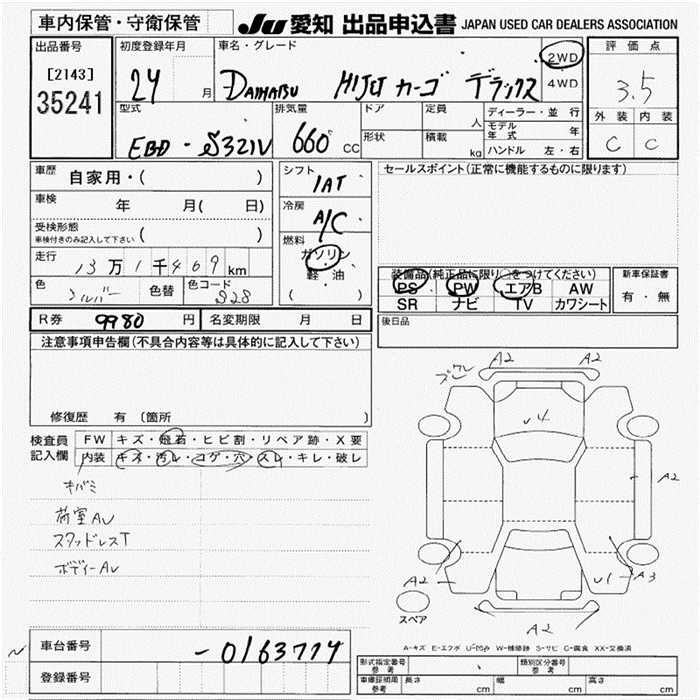 車内保管・守衛保管 JU 愛知 出品申込書 JAPAN USED CAR DEALERS ASSOCIATION
出品番号 初度登録年月 車名・グレード 評価点
[2143] 24 月 DAIHATSU HIJET カーゴ デラックス 2WD 3.5
35241 4WD
外装 内装
型式 排気量 ドア 定員 人 ディーラー・並行
EBD-S321V 660 CC 形状 積載 kg モデル年式 年 C C
ハンドル 左・右
車歴 自家用・( ) シフト セールスポイント(正常に機能するものに限ります)
1AT
車検 年 月( 日) 冷房
A/C
受検形態
車検付きのみ記入して下さい ( ) 燃料
ガソリン
走行 13万1千469km 軽・油 装備品(純正品に限り○をつけてください) 新車保証書
色 シルバー 色替 色コード S28 ( ) PS PW エアB AW 有・無
SR ナビ TV カワシート
R券 9980 円 名変期限 月 日 後日品
注意事項申告欄(不具合内容等は具体的に記入して下さい)
A2 A2
修復歴 有 (箇所 )
検査員 FW キズ・飛石・ヒビ割・リペア跡・X要
記入欄 内装 キズ・汚レ・コゲ・穴・スレ・キレ・破レ
キバミ
荷室AU
スタッドレスT
ボディーAU
A2
A2 A3
スペア
A2
A-キズ E-エクボ U-凹み W-補修跡 S-サビ C-腐食 XX-交換済
車台番号 -0163774
登録番号
形式指定番号 参考 類別区分番号 参考
車庫証明用 参考 長さ cm 幅 cm 高さ cm